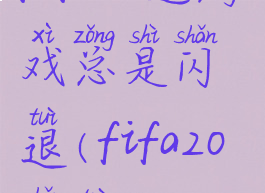 xì zǒng shì shǎn
戏总是闪
tuì
退(fifa20